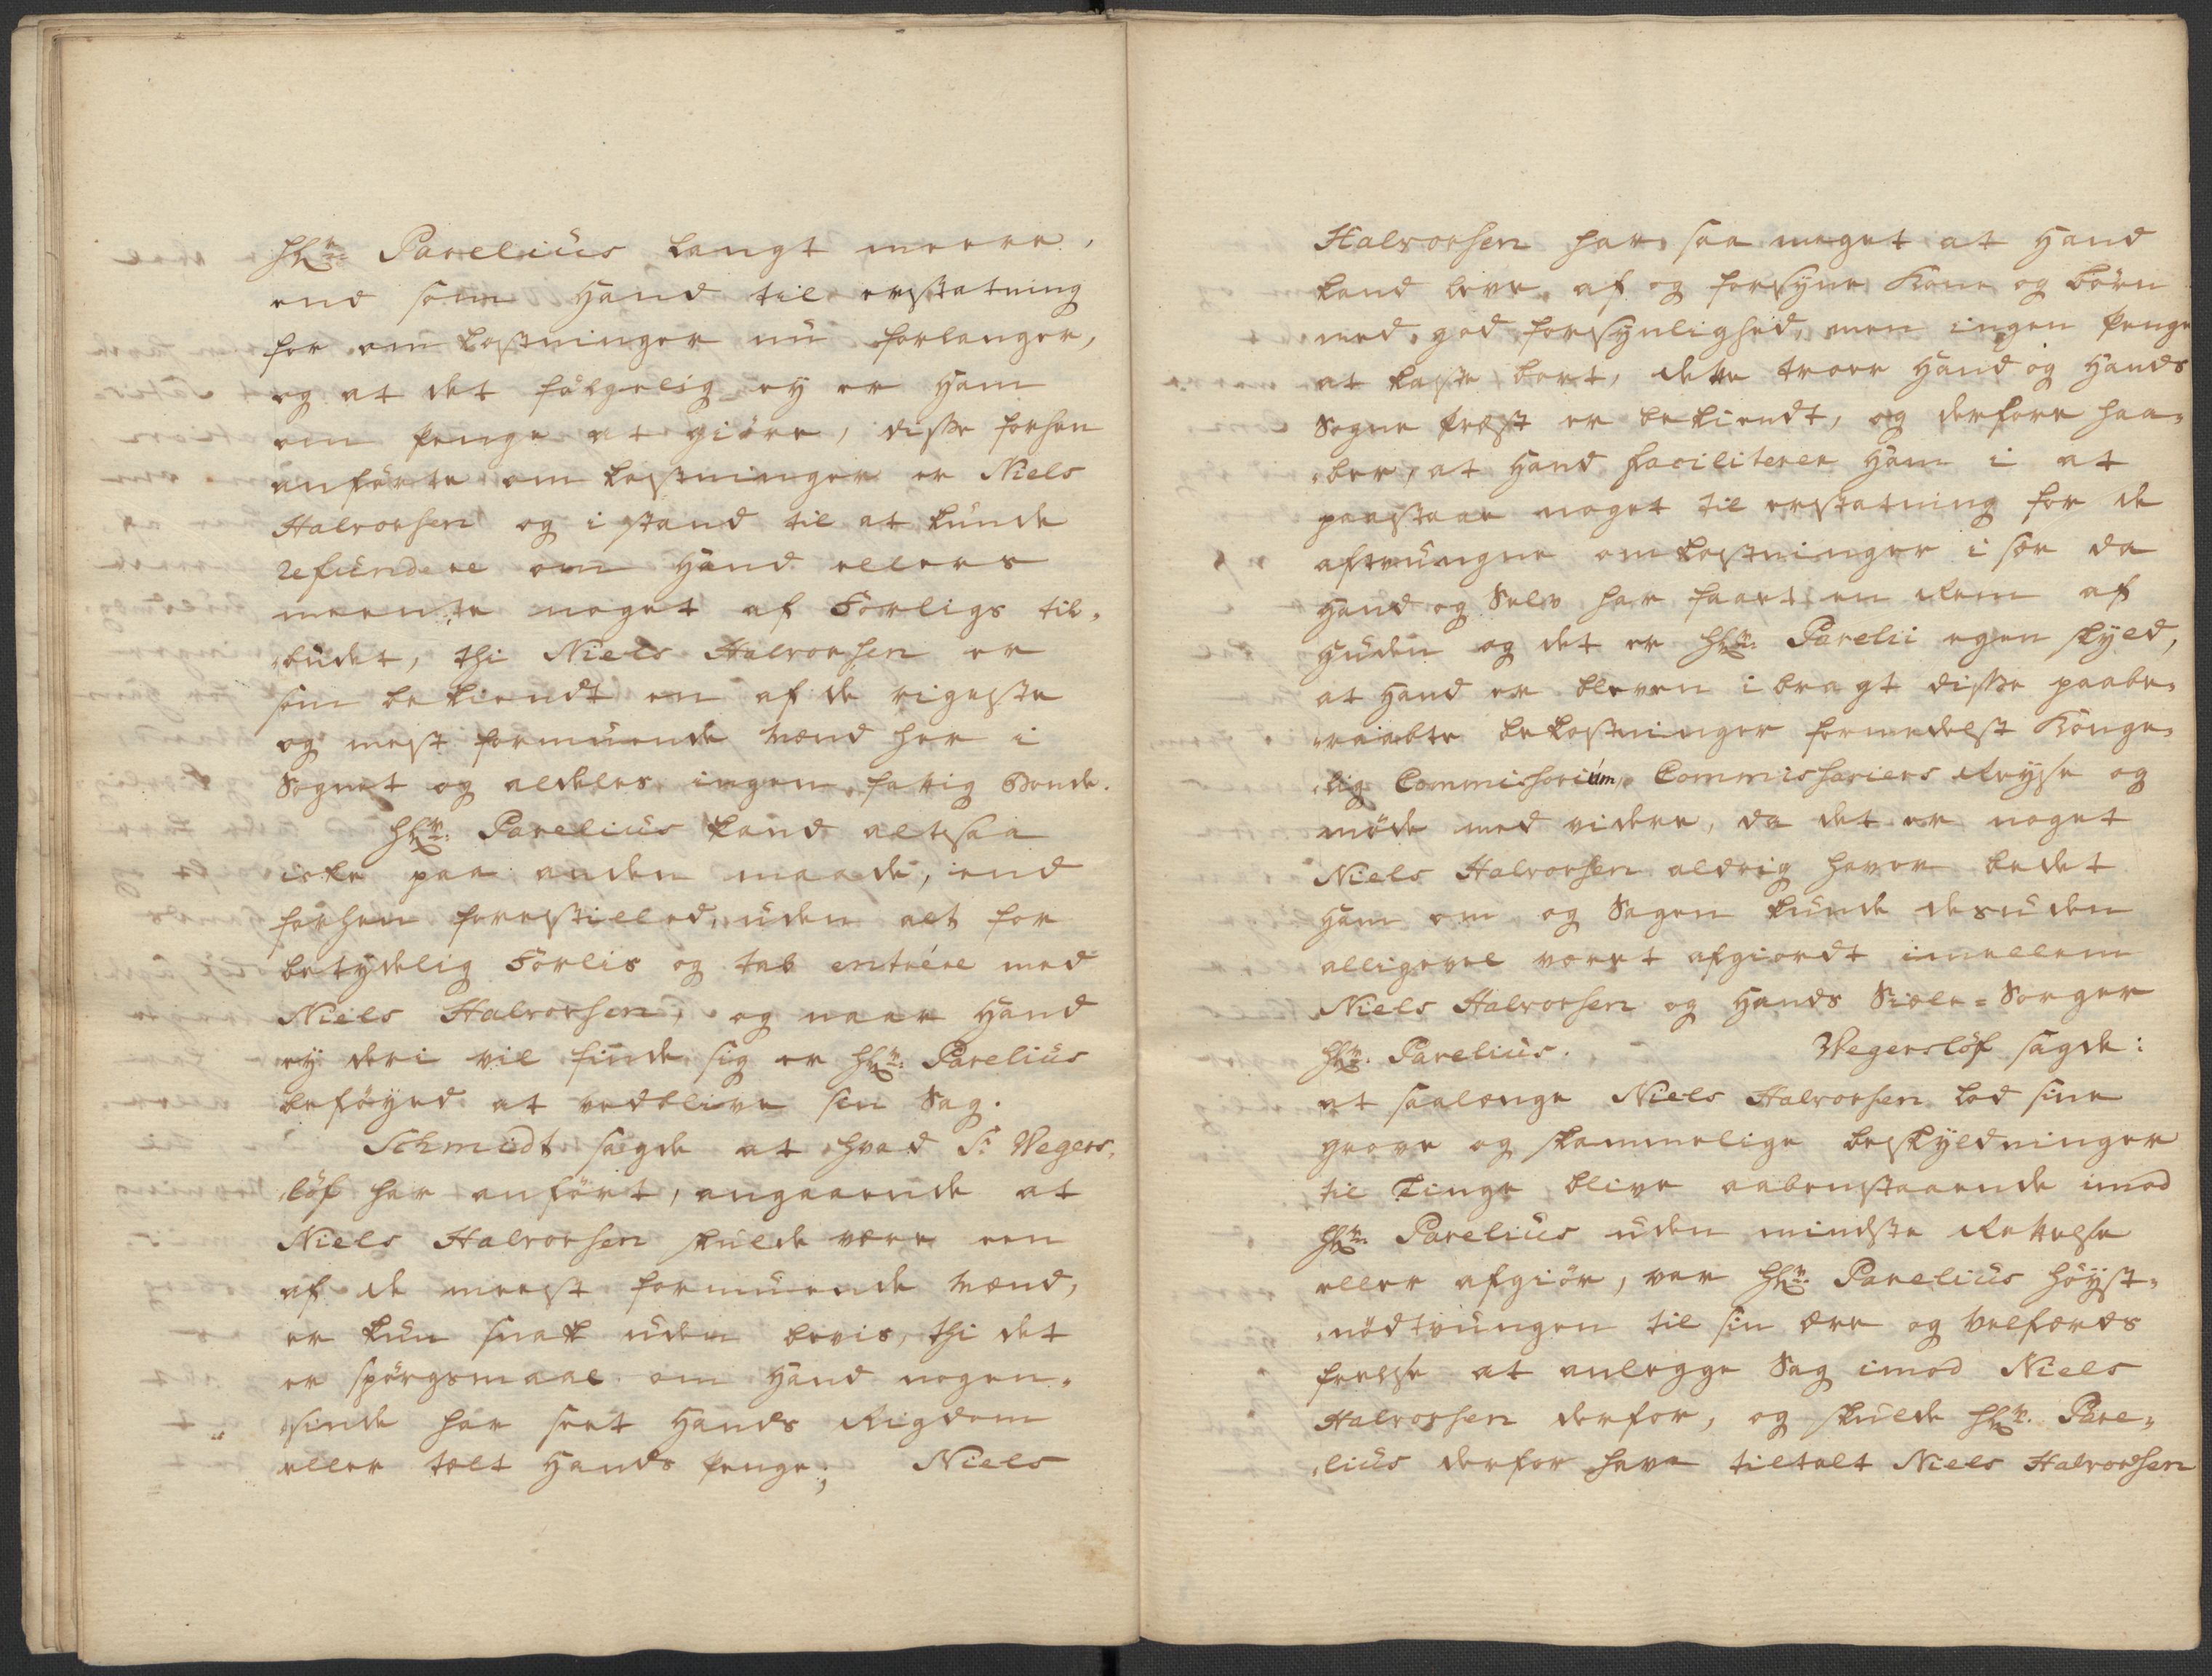 Hr: Parelius langt meere,
end som Hand til erstatning
for omkostninger nu forlanger,
og at det fölgelig ey er Ham
om penge at giöre, disse forhen
anförte omkostninger er Niels
Halvorsen og i stand til at kunde
refundere om Hand ellers
meente noget af Forligs til-
budet, thi Niels Halvorsen er
som bekiendt en af de rigeste
og mest formuende Mænd her i
Sognet og aldeles ingen fattig Bonde.
Hr: Parelius kand altsaa
icke paa anden maade, end
forhen forestilled, uden alt for
betydelig Forlis og tab entrere med
Niels Halvorsen, og naar Hand
ey deri vil finde sig er Hr: Parelius
beföyed at vedblive sin Sag.
Schmidt sagde at hvad Sr. Wegers-
löf har anfört, angaaende at
Niels Halvorsen skulde være een
af de meest formuende Mænd,
er kun snak uden bevis, thi det
er spörgsmaal om Hand nogen-
sinde har seet Hands Rigdom
eller talt Hands penge; Niels
Halvorsen har saa meget at Hand
kand leve af og forsyne Kone og börn
med god forsynlighed, men ingen penge
at kaste bort, dette troer Hand og Hands
Sogne Præst er bekiendt, og derfore haa-
ber, at Hand faciliterer Ham i at
paastaae noget til erstatning for de
aftvungne omkostninger i sær da
Hand og Selv har faaet en Rem af
Huden og det er Hr: Parelii egen skyld,
at Hand er bleven ibragt disse paabe-
raabte bekostninger formedelst Konge-
lig Commissorium, Commissariers Reyse og
möde med videre, da det er noget
Niels Halvorsen aldrig haver bedet
Ham om og Sagen kunde desuden
alligevel været afgiordt imellem
Niels Halvorsen og Hands Siæle-Sörger
Hr: Parelius. Wegerslöf sagde:
at saalænge Niels Halvorsen lod sine
grove og skammelige beskyldninger
til Tinge blive aabenstaaende imod
Hr: Parelius uden mindste Rettelse
eller afgiör, var Hr: Parelius höyst-
nödtvungen til sin Ære og Velfærds
frelse at anlægge Sag imod Niels
Halvorsen derfor, og skulde Hr: Pare-
lius derfor have tiltalt Niels Halvorsen